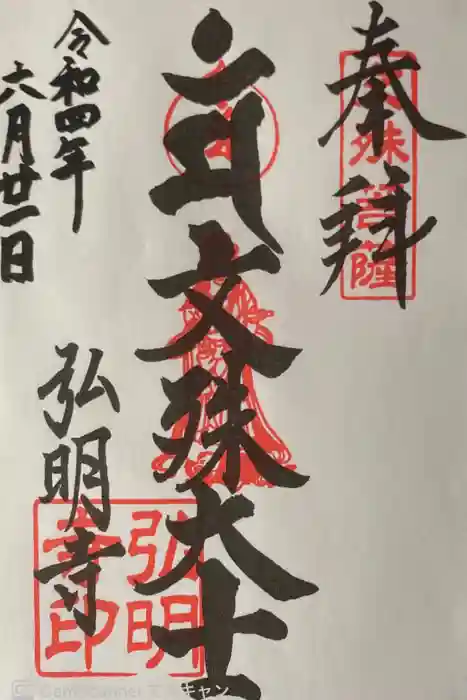 奉拝
文殊菩薩
文殊大士
令和四年
六月廿一日
弘明寺
弘明
寺印
CamScanner でスキャン